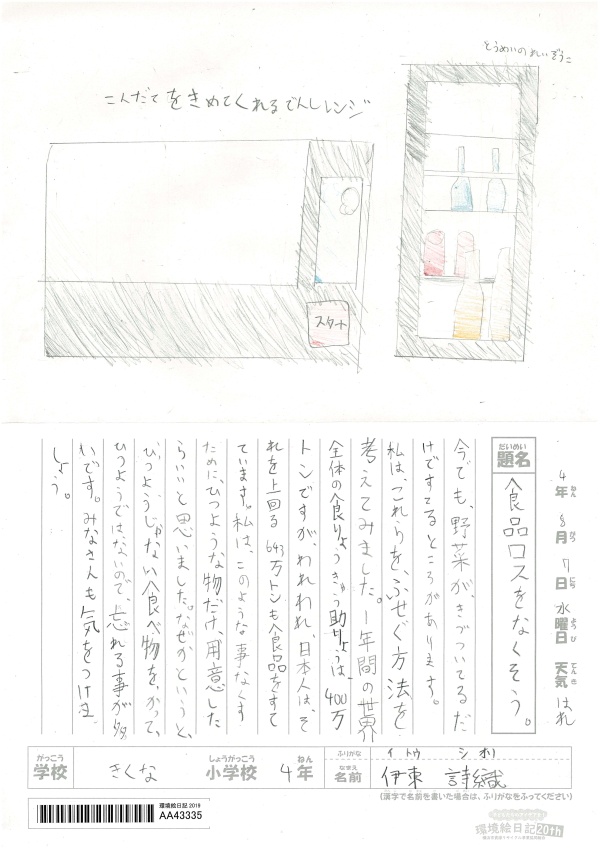 とうめいのれいぞうこ
こんだてをきめてくれるでんしレンジ
スタート
4年 8月 7日 水曜日 天気 はれ
ねん がつ にち ようび てんき
だいめい
題名 食品ロスをなくそう。
今でも、野菜が、きづついてるだ
けですてるところがあります。
私は、これらを、ふせぐ方法を
考えてみました。1年間の世界
全体の食りょうきゅう助りょうは、400万
トンですが、われわれ、日本人は、そ
れを上回る643万トンも食品をすて
ています。私は、このような事なくす
ために、ひつような物だけ、用意した
らいいと思いました。なぜかというと、
ひつようじゃない食べ物を、かって、
ひつようではないので、忘れる事が多
いです。みなさんも気をつけま
しょう。
がっこう しょうがっこう ねん ふりがな イトウ シオリ
学校 きくな 小学校 4年 なまえ 名前 伊東 詩織
(漢字で名前を書いた場合は、ふりがなをふってください)
環境絵日記 2019
AA43335
環境絵日記20th